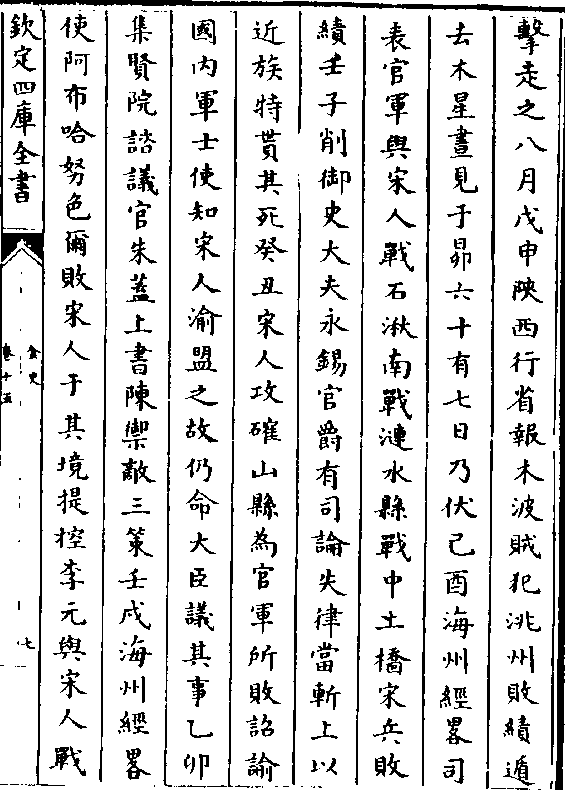 擊走之八月戊申陜西行省報木波賊犯洮州敗績遁
去木星晝見于昴六十有七日乃伏己酉海州經畧司
表官軍與宋人戰石湫南戰漣水縣戰中土橋宋兵敗
績壬子削御史大夫永錫官爵有司論失律當斬上以
近族特貰其死癸丑宋人攻確山縣為官軍所敗詔諭
國内軍士使知宋人渝盟之故仍命大臣議其事乙卯
集賢院諮議官朱蓋上書陳禦敵三策壬戌海州經畧
使阿布哈努色爾敗宋人于其境提控李元與宋人戰
欽定四庫全書
金史
卷十五
七